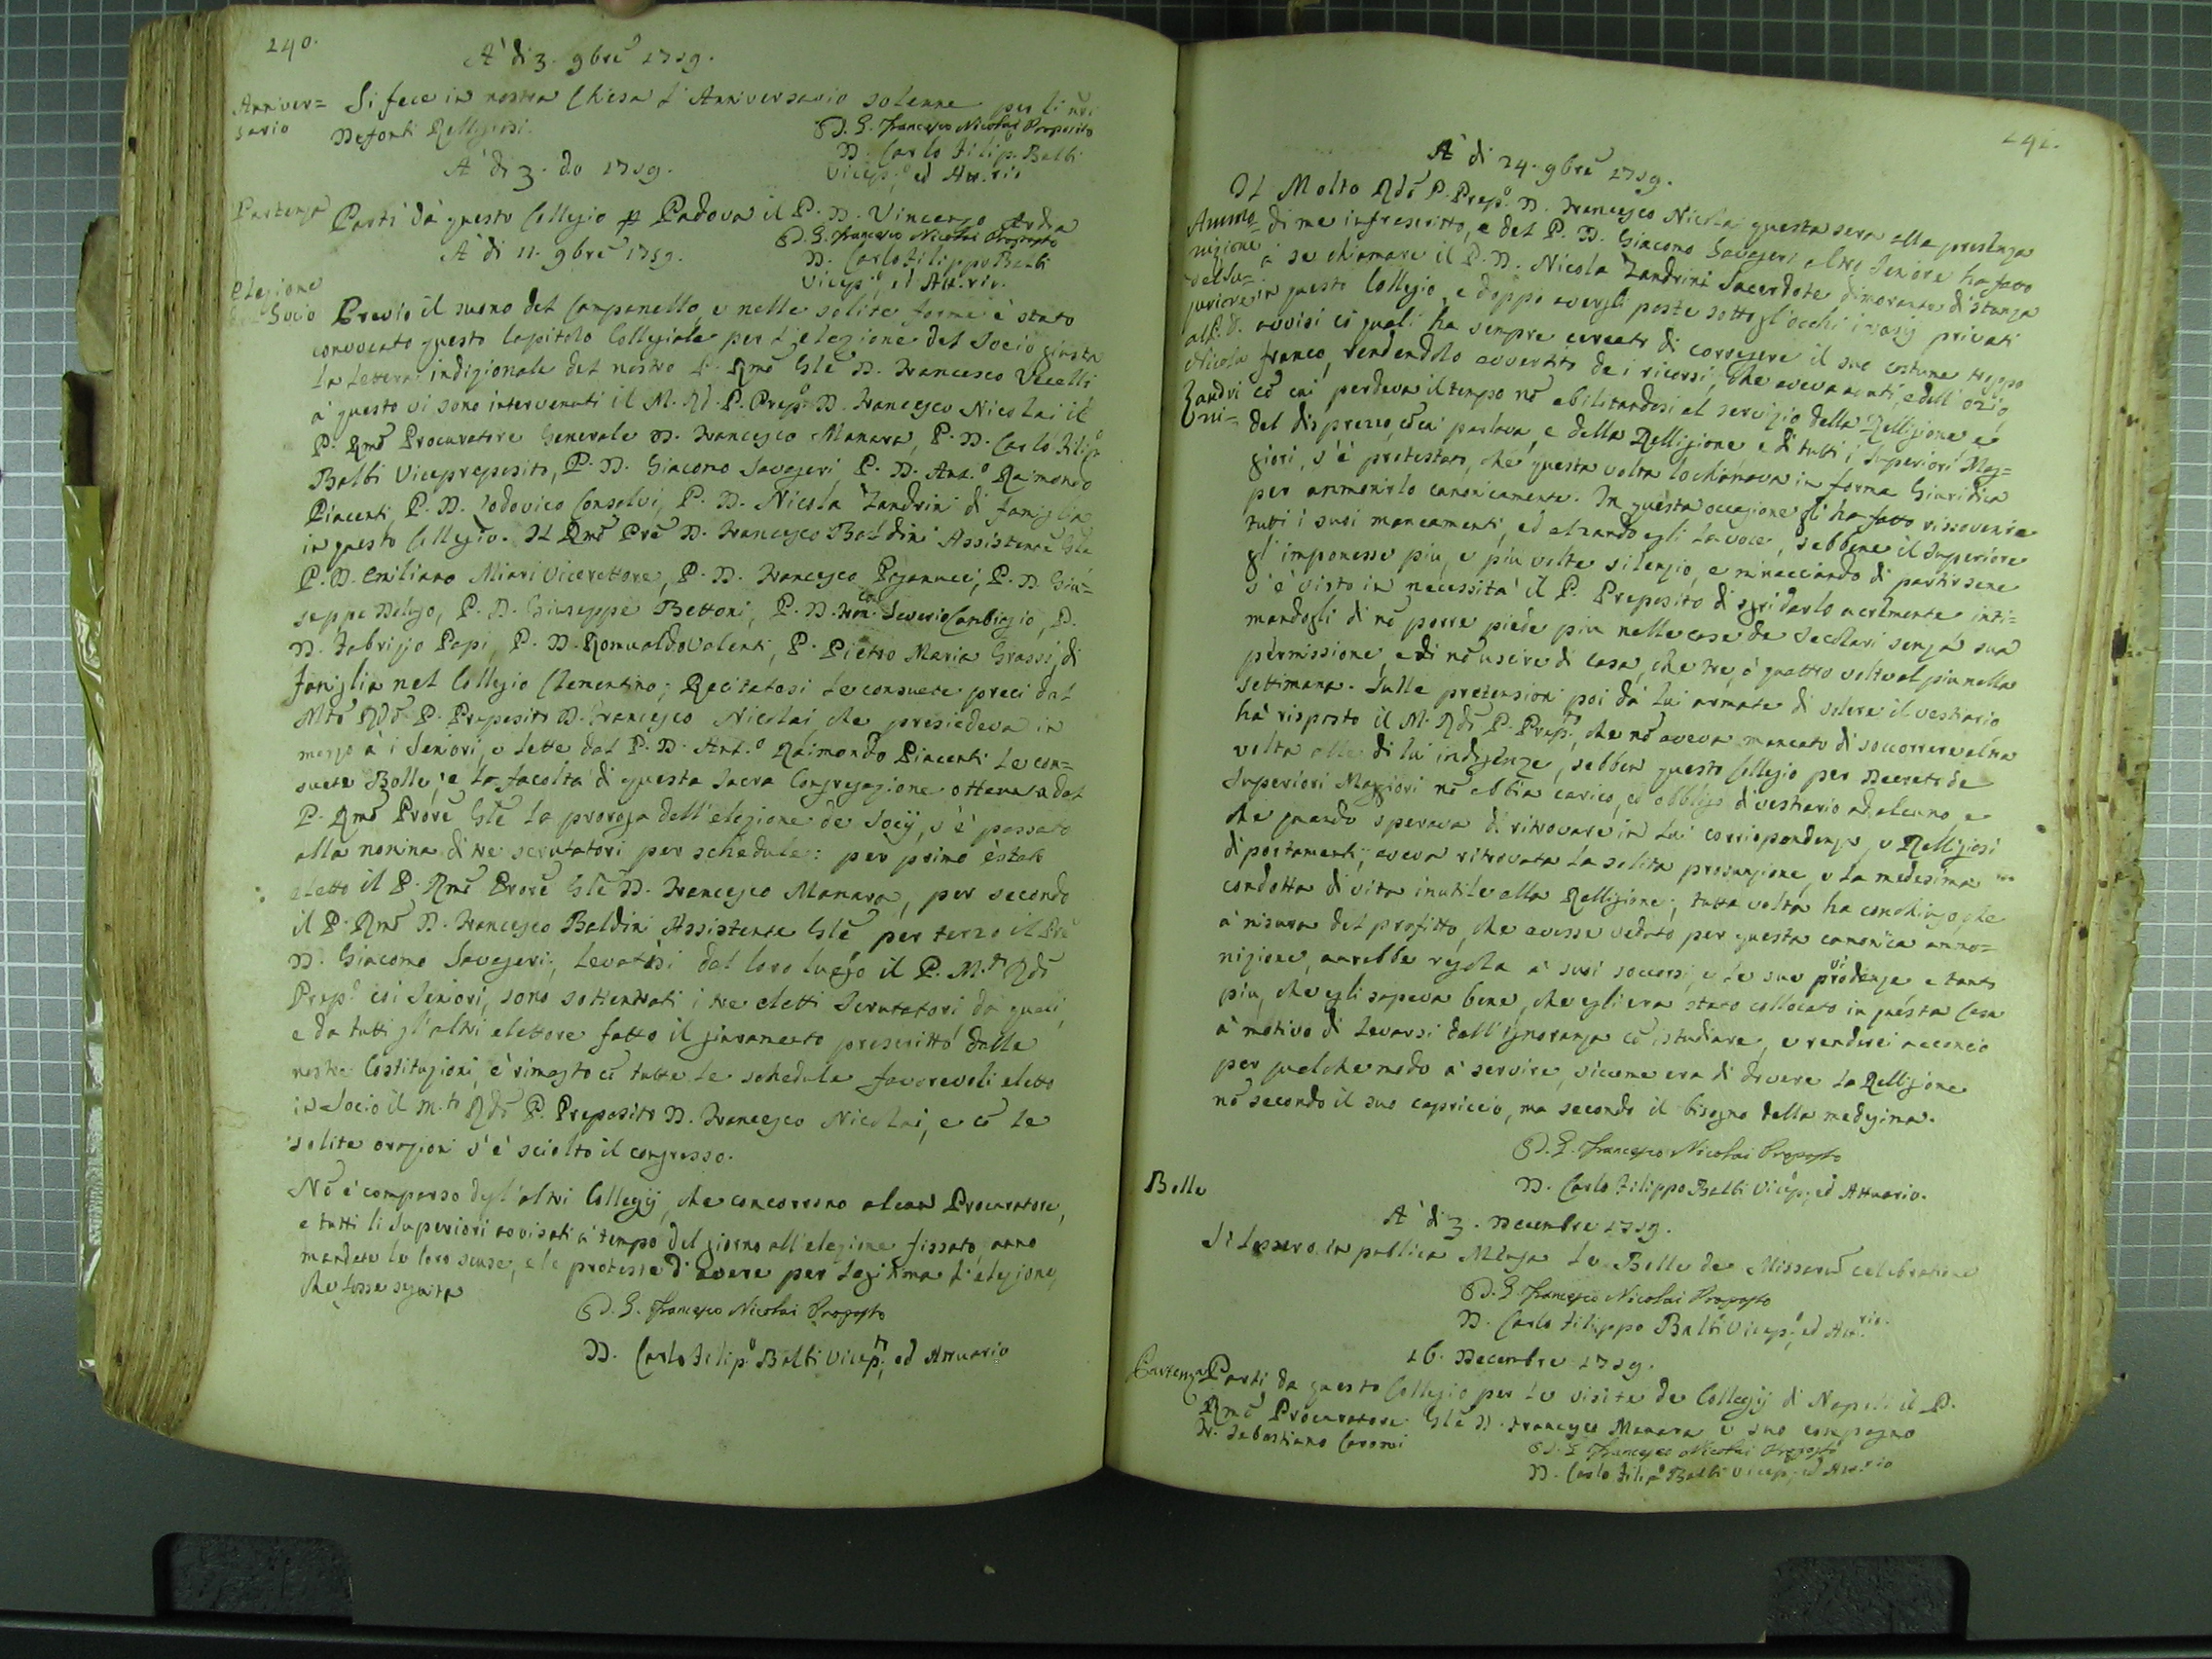 240.
A' di 3. 9bre 1719.
Anniver=
sario
Si fece in nostra Chiesa l'Anniversario solenne per li nri
Defonti Relligiosi.
D. G. Francesco Nicolai Preposito
D. Carlo Filip. Balbi
Vicep.o ed Att.rio
A' di 3. do 1719.
Partenza
Partì da questo Collegio p Padova il P. D. Vincenzo
D. G. Francesco Nicolai Preposto
D. Carlo Filippo Balbi
Vicep.o ed Att.rio
A' di 11. 9bre 1719.
Elezione
del Socio
Previo il suono del Campanello, e nelle solite forme è stato
convocato questo Capitolo Collegiale per l'elezione del Socio giusta
la lettera indizionale del nostro P. Rmo Gle D. Francesco Vecelli
à questo vi sono intervenuti il M. Rd. P. Prepo. D. Francesco Nicolai il
P. Rmo Procuratore Generale D. Francesco Manara, P. D. Carlo Filipo
Balbi Vicepreposito, P. D. Giacomo Savageri P. D. Ant.o Raimondo
Piacenti, P. D. Lodovico Consolvi, P. D. Nicola Zandrini di famiglia
in questo Collegio. Il Rmo Pre D. Francesco Baldini Assistente Gle
P. D. Emiliano Miari Vicerettore, P. D. Francesco Poganucci, P. D. Giu=
seppe Delugo, P. D. Giuseppe Bettoni, P. D. Fran.co Saverio Cambiagio, P.
D. Fabrizio Papi, P. D. Romualdo Valenti, P. Pietro Maria Grassi, di
famiglia nel Collegio Clementino; Recitatosi le consuete preci dal
Mto Rdo P. Preposito D. Francesco Nicolai, che presiedeva in
mezzo à i Seniori, e lette dal P. D. Ant.o Raimondo Piacenti le con=
suete Bolle, e la facoltà di questa Sacra Congregazione ottenuta dal
P. Rmo Prore Gle la proroga dell'elezione de Socij, s'è passato
alla nomina di tre scrutatori per schedule: per primo è stato
eletto il P. Rmo Prore Gle D. Francesco Manara, per secondo
il P. Rmo D. Francesco Baldini Assistente Gle, per terzo il Pre
D. Giacomo Savageri; Levatisi dal loro luogo il P. M.to Rdo
Prep.o e i Seniori, sono sottentrati i tre eletti Scrutatori da quali,
e da tutti gl'altri elettore fatto il giuramento prescritto dalle
nostre Costituzioni, è rimasto cō tutte le schedule favorevoli eletto
in Socio il M.to Rdo P. Preposito D. Francesco Nicolai, e cō le
solite orazioni s'è sciolto il congresso.
Nō è comparso degl'altri Collegij, che concorrono alcun Procuratore,
e tutti li Superiori avvisati à tempo del giorno all'elezione fissato, anno
mandate le loro scuse, e le proteste d'avere per legitima l'elezione
che fosse seguita
D. G. Francesco Nicolai Preposto
D. Carlo Filip.o Balbi Vicep.to, ed Attuario
241.
A' di 24. 9bre 1719.
Ammo=
nizione
del Su=
periore
al P. D.
Nicola
Zandri
ni=
Il Molto Rdo P. Prep.o D. Francesco Nicolai questa sera alla presenza
di me infrascritto, e del P. D. Giacomo Savageri altro Seniore ha fatto
à se chiamare il P. D. Nicola Zandrini Sacerdote dimorante di stanza
in questo Collegio, e doppo avergli poste sotto gl'occhi i varij privati
avvisi cō quali ha sempre cercato di correggere il suo costume troppo
franco, rendendolo avvertito de i ricorsi, che aveva avuti, e dell'ozio,
cō cui perdeva il tempo nō abilitandosi al servizio della Relligione, e
del disprezzo, cō cui parlava, e della Relligione e di tutti i Superiori Mag=
giori, s'è protestato, che questa volta lo chiamava in forma Giuridica
per ammonirlo canonicamente. In questa occasione gli ha fatto risovenire
tutti i suoi mancamenti, ed alzando egli la voce, sebbene il Superiore
gl'imponesse più, e più volte silenzio, e minacciando di partirsene
s'è visto in necessità il P. Preposito di sgridarlo acremente inti=
mandogli di nō porre piede più nelle case de Secolari senza sua
permissione, e di nō uscire di casa, che tre, ò quattro volte al più nella
settimana. Sulle pretensioni poi da lui armate di volere il vestiario
hà risposto il M. Rdo P. Prep.to, che nō aveva mancato di soccorrere alcuna
volta alle di lui indigenze, sebben questo Collegio per Decreto de
Superiori Maggiori nō abbia carico, ed obbligo di vestiario ad alcuno e
che quando sperava di ritrovare in lui corrispondenza, e Relligiosi
diportamenti, aveva ritrovata la solita prosunzione, e la medesima
condotta di vita inutile alla Relligione, tutta volta ha conchiuso, che
à misura del profitto, che avesse veduto per questa canonica ammo=
nizione, avrebbe regola à suoi soccorsi, e le sue providenze e tanto
più, che egli sapeva bene, che egli era stato collocato in questa Casa
à motivo di levarsi dall'ignoranza cō istudiare, e renderci acconcio
per qualche modo à servire, siccome era di dovere la Relligione
nō secondo il suo capriccio, ma secondo il bisogno della medesima.
D. G. Francesco Nicolai Preposto
D. Carlo Filippo Balbi Vicep.o, ed Attuario.
Bolle
A' di 3. Decembre 1719.
Si lessero in publica Mensa le Bolle de Missarū celebratione
D. G. Francesco Nicolai Preposto
D. Carlo Filippo Balbi Vicep.o, ed Att.rio.
16. Decembre 1719.
Partenza
Partì da questo Collegio per le visite de Collegij di Napoli il P.
Rmo Procuratore Gle D. Francesco Manara e suo compagno
Sebastiano
D. G. Francesco Nicolai Preposto
D. Carlo Filip.o Balbi Vicep.o, ed Att.rio